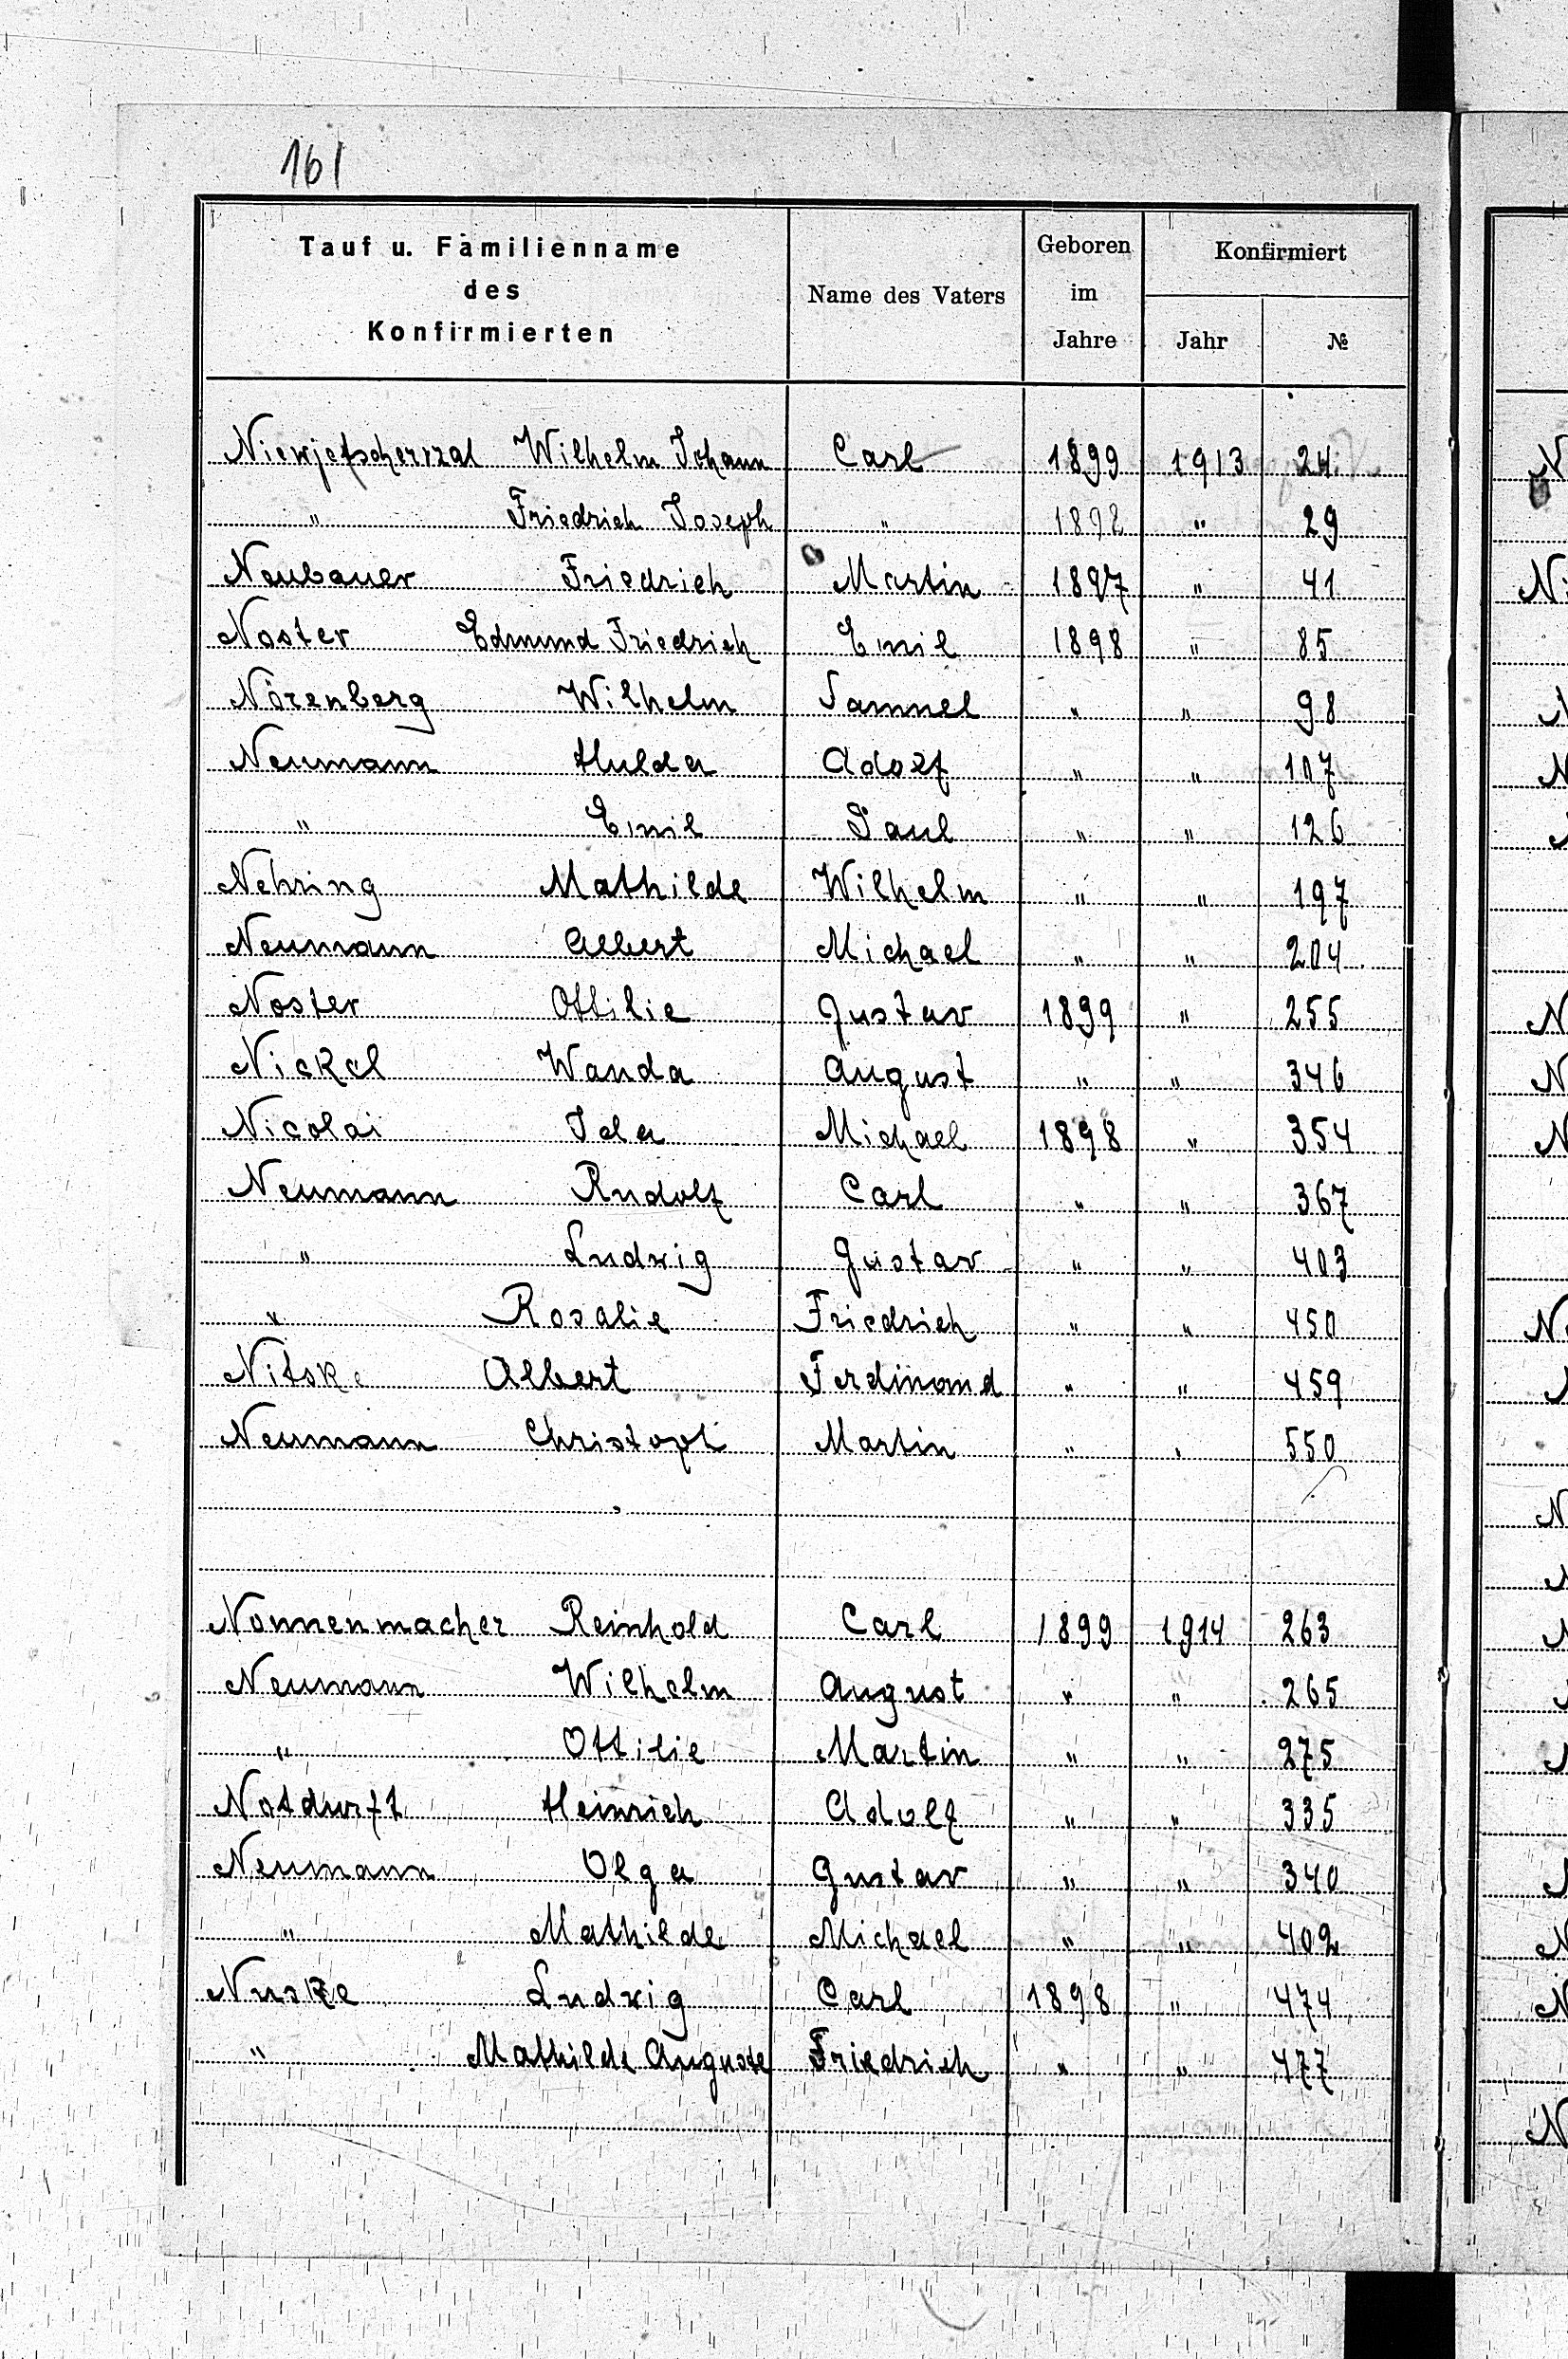 161
Tauf u. Familienname des Konfirmierten | Name des Vaters | Geboren im Jahre | Konfirmiert Jahr | №
Wilhelm Johann Carl 1899 1913 24
" Friedrich Joseph " 1892 " 29
Neubauer Friedrich Martin 1897 " 41
Noster Edmund Friedrich Emil 1898 " 85
Nörenberg Wilhelm Samuel " " 98
Neumann Hulda Adolf " " 107
" Emil Paul " " 126
Nehring Mathilde Wilhelm " " 197
Neumann Albert Michael " " 204
Noster Ottilie Gustav 1899 " 255
Nickel Wanda August " " 346
Nicolai Ida Michael 1898 " 354
Neumann Rudolf Carl " " 367
" Ludwig Gustav " " 403
" Rosalie Friedrich " " 450
Nitske Albert Ferdinand " " 459
Neumann Christoph Martin " " 550
Nonnenmacher Reinhold Carl 1899 1914 263
Neumann Wilhelm August " " 265
" Ottilie Martin " " 275
Notdurft Heinrich Adolf " " 335
Neumann Olga Gustav " " 340
" Mathilde Michael " " 402
Nuske Ludwig Carl 1898 " 474
" Mathilde Auguste Friedrich " " 477